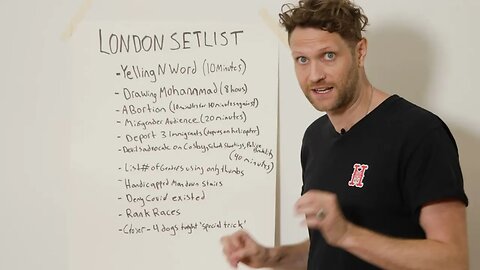 LONDON SETLIST
- Yelling N Word (10 Minutes)
- Drawing Mohammad (8 hours)
- Abortion (10 minutes for 10 minutes against)
- Misgender Audience (20 minutes)
- Deport 3 Immigrants (depends on helicopter)
- Devils advocate on Cosby, School Shootings, Police Brutality
(40 minutes)
- List # of Genders using only thumbs
- Handicapped Man down stairs
- Deny Covid existed
- Rank Races
- Closer - 4 dogs taught 'special trick'
H